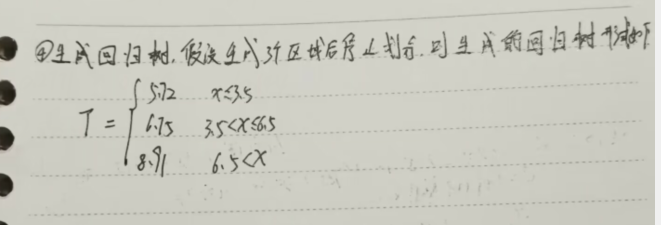 ④生成回归树,假设生成3个区域后停止划分,则生成的回归树形式如下
5.72 x≤3.5
T = 6.75 3.5<x≤6.5
8.91 6.5<x